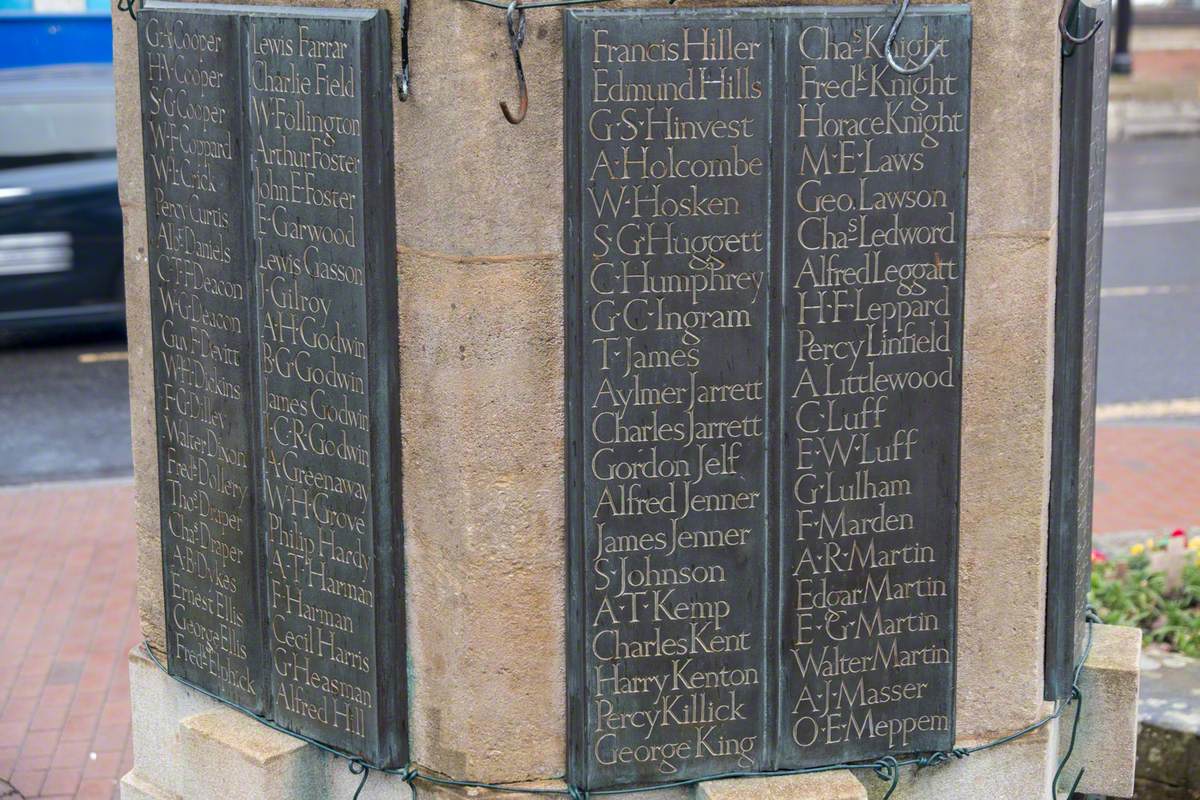 G·A·Cooper
H·V·Cooper
S·G·Cooper
W·F·Coppard
W·E·Crick
Percy Curtis
Alb^t Daniels
C·T·F·Deacon
W·G·Deacon
Guy F·Devitt
W·H·Dickins
F·G·Dilley
Walter Dixon
Fred^k Dollery
Tho^s Draper
Cha^s Draper
A·B·Dykes
Ernest Ellis
George Ellis
Fred^k Elphick
Lewis Farrar
Charlie Field
W·Follington
Arthur Foster
John E·Foster
F·Garwood
Lewis Gasson
J·Gilroy
A·H·Godwin
B·G·Godwin
James Godwin
J·C·R·Godwin
A·Greenaway
W·H·Grove
Philip Hardy
A·T·Harman
F·Harman
Cecil Harris
G·Heasman
Alfred Hill
Francis Hiller
Edmund Hills
G·S·Hinvest
A·Holcombe
W·Hosken
S·G·Huggett
C·Humphrey
G·C·Ingram
T·James
Aylmer Jarrett
Charles Jarrett
Gordon Jelf
Alfred Jenner
James Jenner
S·Johnson
A·T·Kemp
Charles Kent
Harry Kenton
Percy Killick
George King
Cha^s Knight
Fred^k Knight
Horace Knight
M·E·Laws
Geo. Lawson
Cha^s Ledword
Alfred Leggatt
H·F·Leppard
Percy Linfield
A·Littlewood
C·Luff
E·W·Luff
G·Lulham
F·Marden
A·R·Martin
Edgar Martin
E·G·Martin
Walter Martin
A·J·Masser
O·E·Meppem